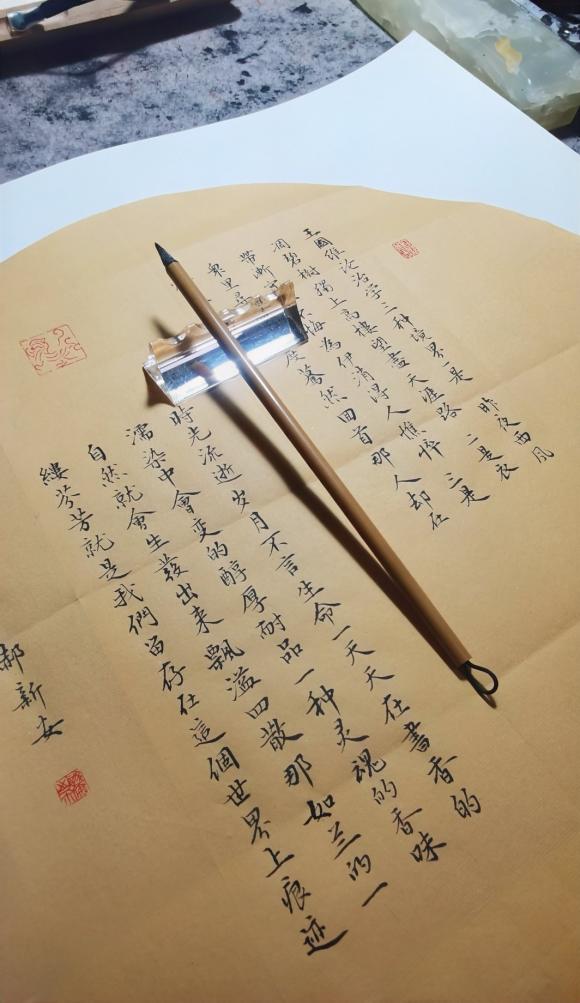 王國維论治学三种境界一是昨夜西风
凋碧樹獨上高樓望盡天涯路二是衣
带漸不悔為伊消得人憔悴三是
眾里尋度驀然回首那人却在
時光流逝岁月不言生命一天天在書香的
濡染中會变的醇厚耐品一种灵魂的香味
自然就會生發出来飘溢四散那如兰的一
縷芬芳就是我們留存在這個世界上痕迹
郝新安